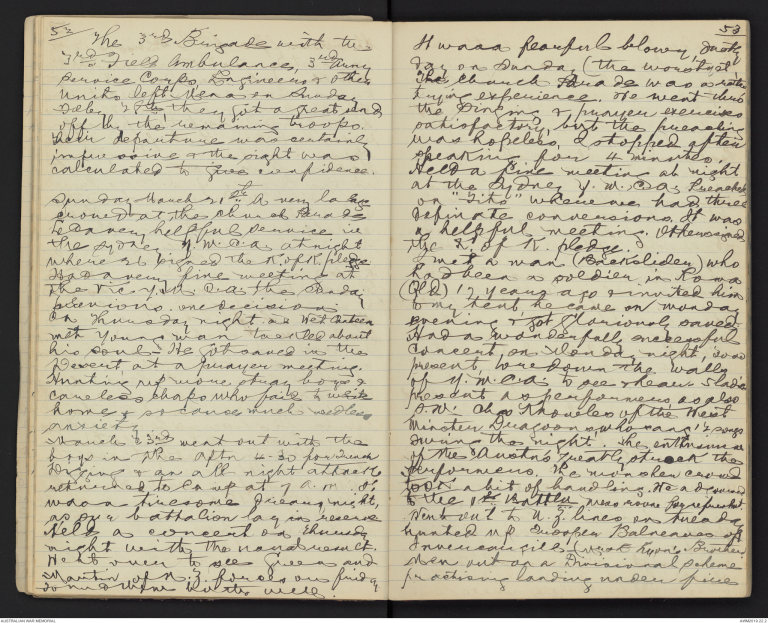 52
The 3rd Brigade with the
3rd Field Ambulance, 3rd Army
Service Corps Engineers & other
units left Mena on Sunday
Feby 28th they got a great send
off by the remaining troops.
Their departure was certainly
impressive & the sight was
calculated to give confidence.
Sunday March 21st A very large
crowd at the church Parade
Led a very helpful service in
the Sydney Y.M.C.A. at night
where 21 signed the K. of K. pledge
Had a very fine meeting at
the Vic. Y.M.C.A. the Sunday
previous. one decision.
On Thursday night at Wet Canteen
met young man talked about
his soul. He got saved in the
Desert at a prayer meeting.
Hunting up more stray boys &
careless chaps who fail to write
home & so cause much needless
anxiety
March 23rd went out with the
boys in the aftn 4.30 for Trench
Digging & an all night attack
returned to Camp at 7 A.M. It
was a tiresome dreary night,
as our battalion lay in reserve
Held a concert on Thursday
night with the usual result.
Went over to see Green and
Martin of N.Z. forces our friday
53
It was a fearful blowy, dusty
day on Sunday (the worst yet
The Church Parade was a rather
trying experience. We went thro
the singing & prayer exercises
satisfactory, but the preaching
was hopeless, I stopped after
speaking for 4 minutes.
Held a fine meeting at night
at the Sydney Y.M.C.A. Preached
on "Sins" where we had three
definate conversions. It was
a helpful meeting. Others signed
the K. of K. pledge.
I met a man (Backslider) who
had been a soldier in Roma
(Qld) 17 years ago & invited him
to my tent, he came on Monday
evening & got gloriously saved.
Had a wonderfully successful
Concert on Monday night,
present, tore down the walls
of Y.M.C.A. to see & hear. Slade
present as performer as also
of the West
Minster Dragoons who sang 7 songs
during the night. The enthusiasm
of the Austns greatly struck the
performers. The
took a bit of handling. We adjourned
to the 1st Battn mess room for refreshment
Went out to N.Z lines on Tuesday
hunted up Trooper Balneaves of
Invercargill Brother
Men out on a Divisional scheme
practising landing under fire
AUSTRALIAN WAR MEMORIAL
AWM2019.22.2